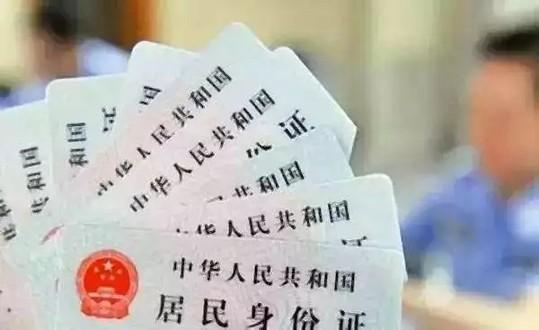 民共和国
民共和国
中华人民共和国
中华人民共和国
份证
中华人民共和国
证
中华人民共和国
居民身份证